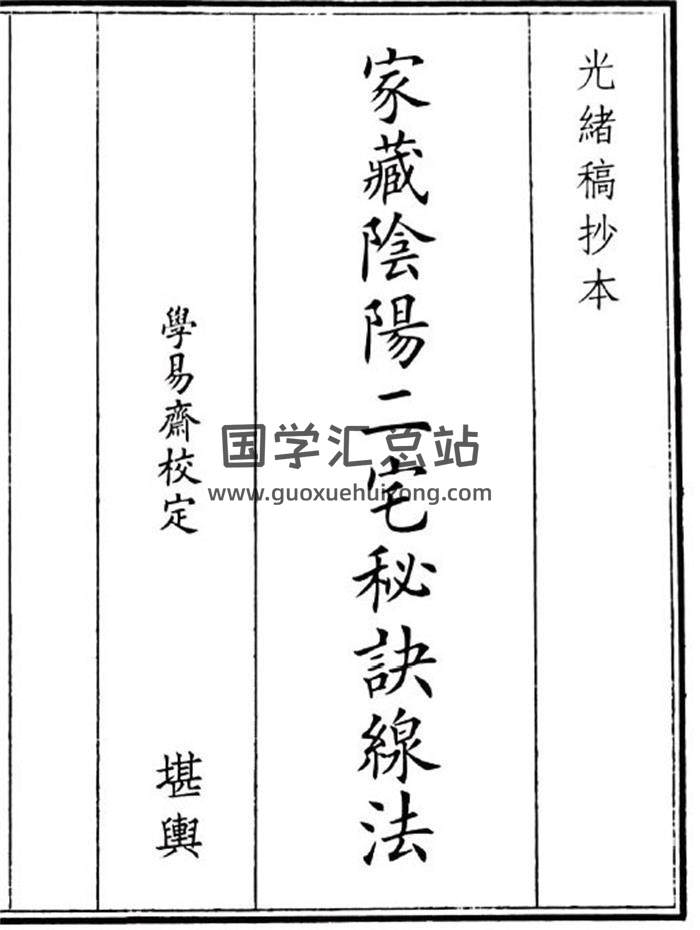 光緒稿抄本
家藏陰陽二宅秘訣線法
學易齋校定
堪輿
国学汇总站
www.guoxuehuizong.com